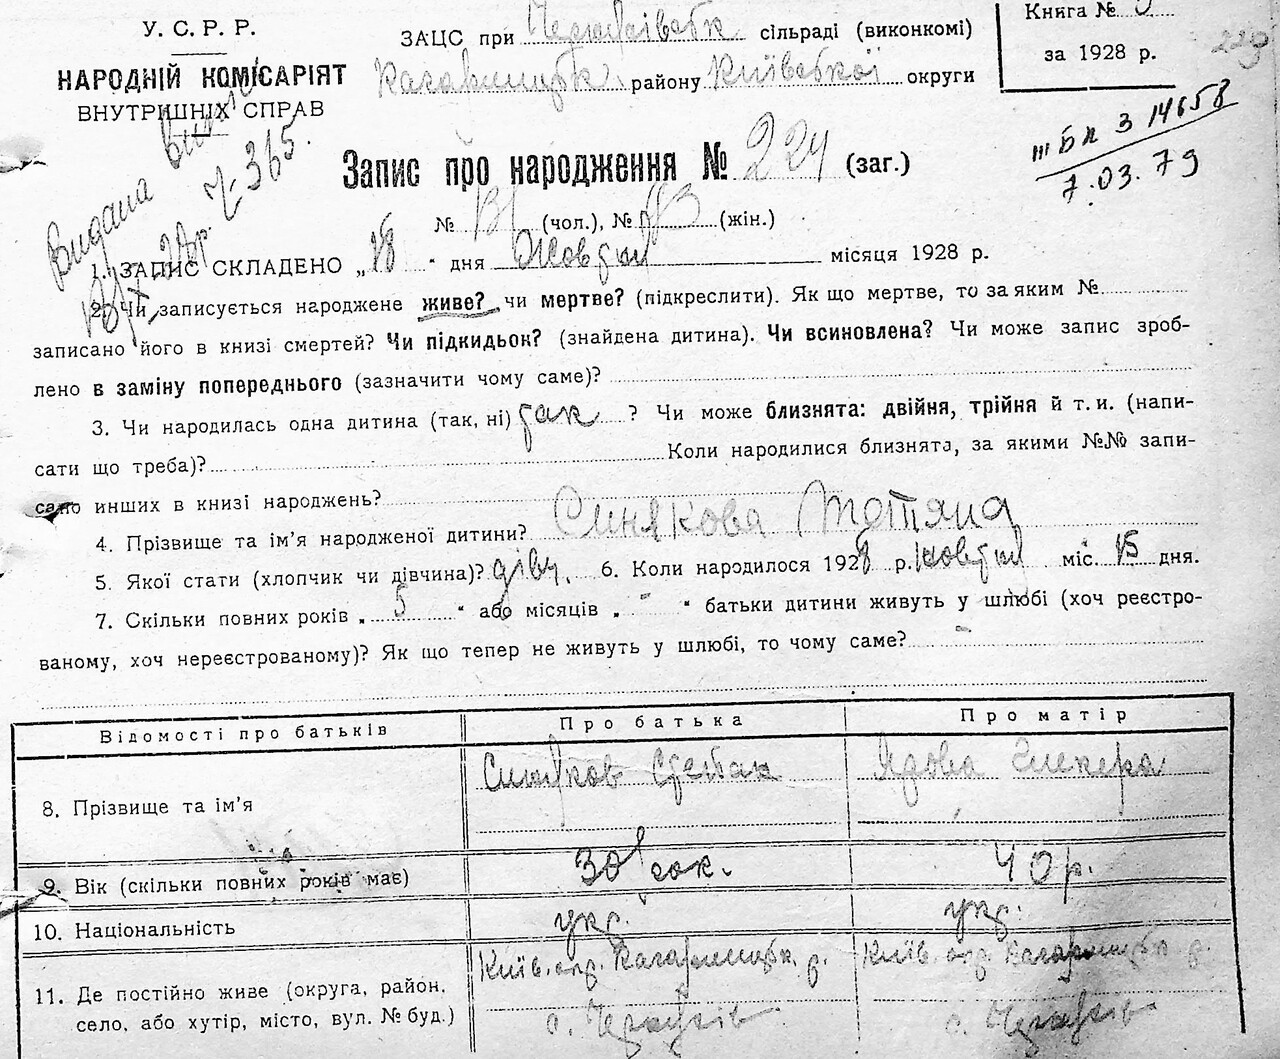 У. С. Р. Р.
НАРОДНІЙ КОМІСАРІЯТ
ВНУТРИШНІХ СПРАВ
ЗАЦС при сільраді (виконкомі)
Кагарлицьк. району Київської округи
Книга №
за 1928 р.
229
ІІІ БК З 14658
7.03.79
Видана
Запис про народження № 224 (заг.)
№ 131 (чол.), № (жін.)
1. ЗАПИС СКЛАДЕНО „18" дня Жовтня місяця 1928 р.
2. Чи записується народжене живе? чи мертве? (підкреслити). Як що мертве, то за яким №
записано його в книзі смертей? Чи підкидьок? (знайдена дитина). Чи всиновлена? Чи може запис зроб-
лено в заміну попереднього (зазначити чому саме)?
3. Чи народилась одна дитина (так, ні) так ? Чи може близнята: двійня, трійня й т. и. (напи-
сати що треба)? Коли народилися близнята, за якими №№ запи-
сано инших в книзі народжень?
4. Прізвище та ім'я народженої дитини? Синякова Тетяна
5. Якої стати (хлопчик чи дівчина)? дівч. 6. Коли народилося 1928 р. жовтня міс. 15 дня.
7. Скільки повних років „ 5 " або місяців „ - " батьки дитини живуть у шлюбі (хоч реєстро-
ваному, хоч нереєстрованому)? Як що тепер не живуть у шлюбі, то чому саме? -
Відомості про батьків Про батька Про матір
8. Прізвище та ім'я Синяков Степан Ядова
9. Вік (скільки повних років має) 30 рок. 40 р.
10. Національність укр. укр.
11. Де постійно живе (округа, район, Київ. окр. Кагарлицьк. р. Київ. окр. Кагарлицьк. р.
село, або хутір, місто, вул. № буд.) с. с.